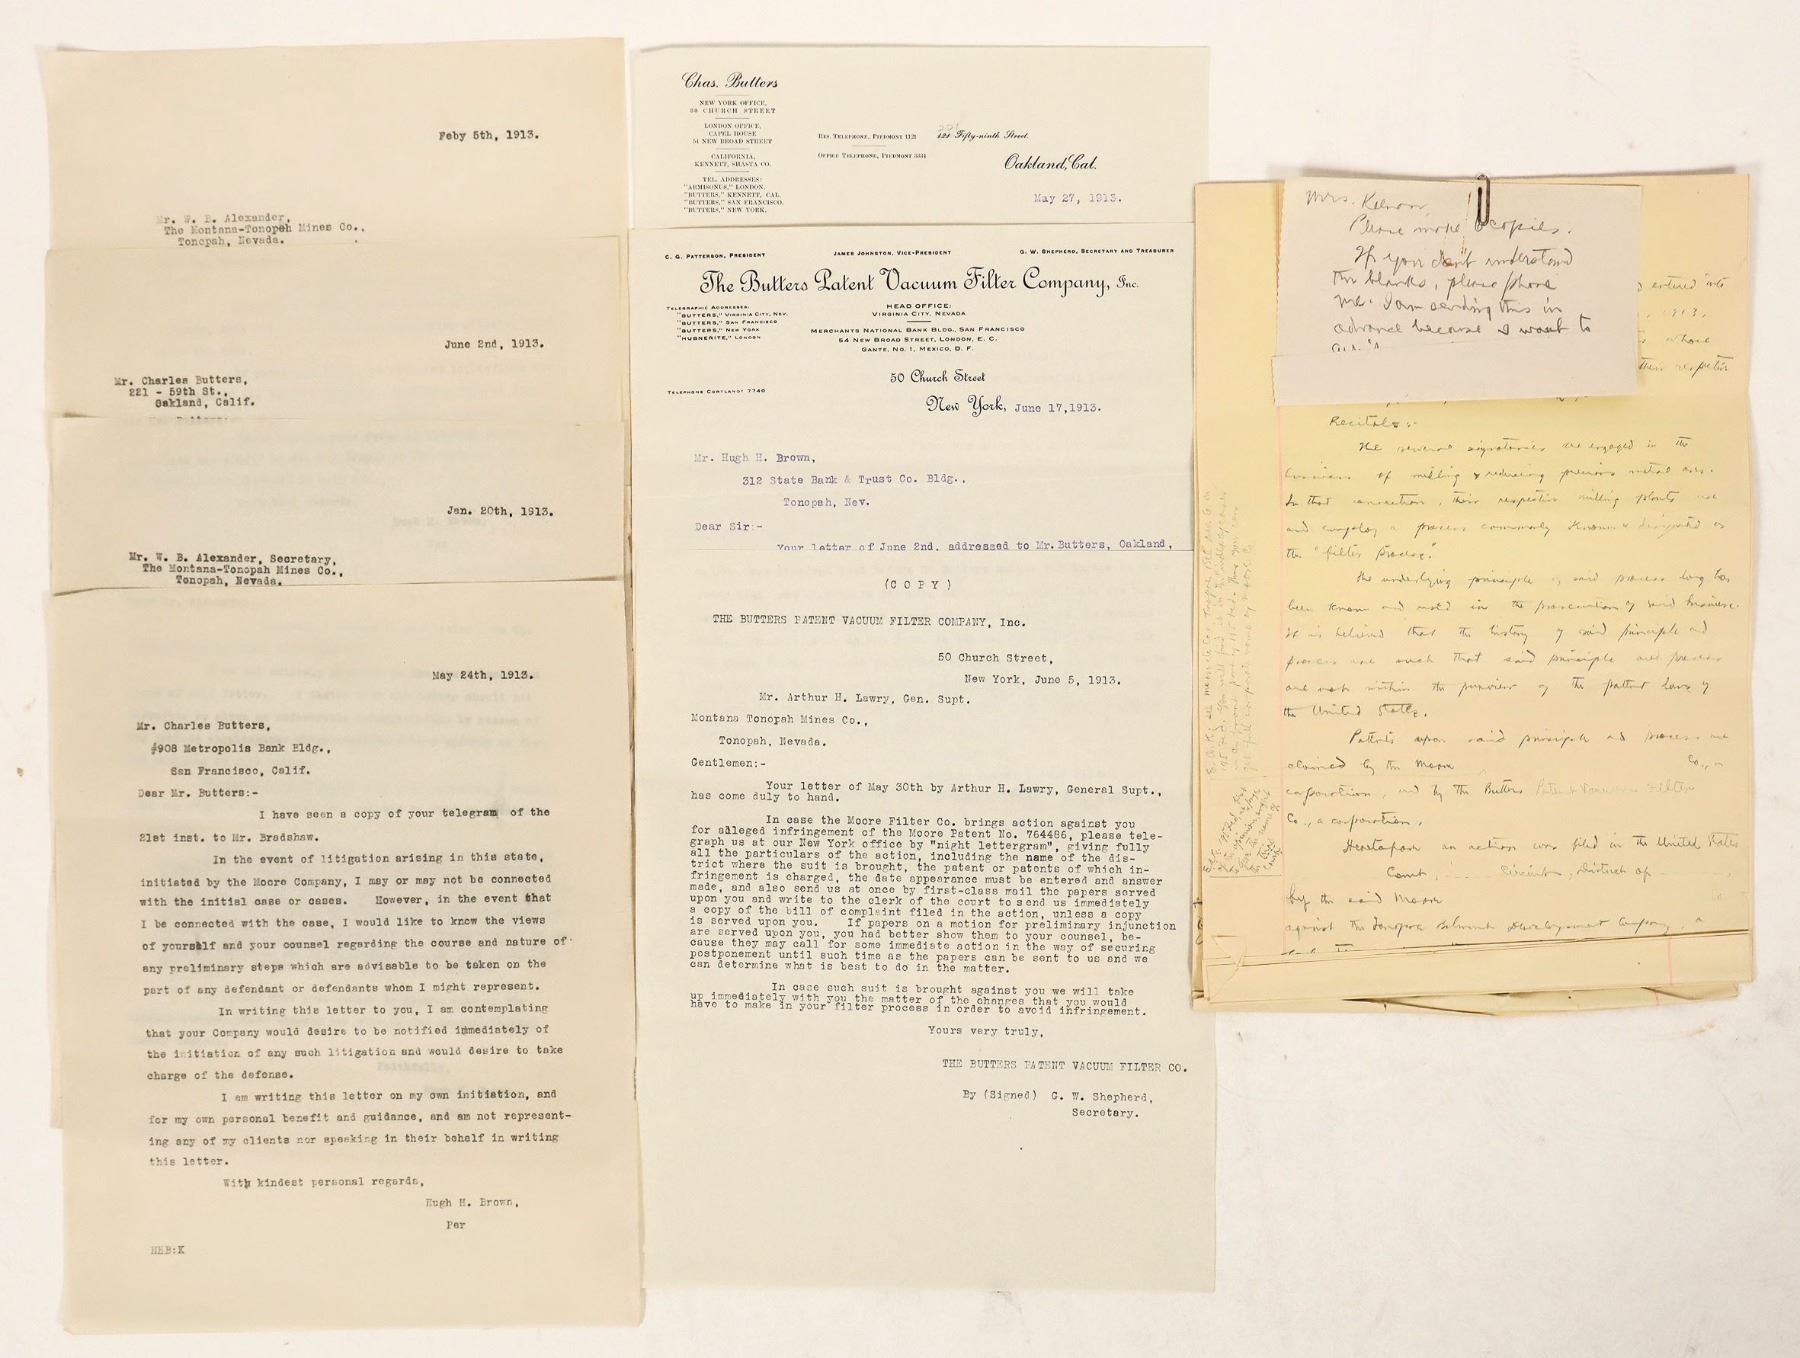 Feby 5th, 1913.
Mr. W. B. Alexander,
The Montana-Tonopah Mines Co.,
Tonopah, Nevada.
June 2nd, 1913.
Mr. Charles Butters,
221 - 59th St.,
Oakland, Calif.
Jan. 20th, 1913.
Mr. W. B. Alexander, Secretary,
The Montana-Tonopah Mines Co.,
Tonopah, Nevada.
May 24th, 1913.
Mr. Charles Butters,
#908 Metropolis Bank Bldg.,
San Francisco, Calif.
Dear Mr. Butters:-
I have seen a copy of your telegram of the
21st inst. to Mr. Bradshaw.
In the event of litigation arising in this state,
initiated by the Moore Company, I may or may not be connected
with the initial case or cases. However, in the event that
I be connected with the case, I would like to know the views
of yourself and your counsel regarding the course and nature of
any preliminary steps which are advisable to be taken on the
part of any defendant or defendants whom I might represent.
In writing this letter to you, I am contemplating
that your Company would desire to be notified immediately of
the initiation of any such litigation and would desire to take
charge of the defense.
I am writing this letter on my own initiation, and
for my own personal benefit and guidance, and am not represent-
ing any of my clients nor speaking in their behalf in writing
this letter.
With kindest personal regards,
Hugh H. Brown,
Per
HHB:K
Chas. Butters
NEW YORK OFFICE,
30 CHURCH STREET
LONDON OFFICE,
CAPEL HOUSE
54 NEW BROAD STREET
CALIFORNIA,
KENNETT, SHASTA CO.
TEL. ADDRESSES:
"ARMISONUS," LONDON.
"BUTTERS," KENNETT, CAL.
"BUTTERS," SAN FRANCISCO.
"BUTTERS," NEW YORK.
RES. TELEPHONE, PIEDMONT 1121
OFFICE TELEPHONE, PIEDMONT 3331
221
Fifty-ninth Street.
Oakland, Cal.
May 27, 1913.
C. G. PATTERSON, PRESIDENT
JAMES JOHNSTON, VICE-PRESIDENT
G. W. SHEPHERD, SECRETARY AND TREASURER
The Butters Patent Vacuum Filter Company, Inc.
TELEGRAPHIC ADDRESSES:
"BUTTERS," VIRGINIA CITY, NEV.
"BUTTERS," SAN FRANCISCO
"BUTTERS," NEW YORK
"HUBNERITE," LONDON
HEAD OFFICE:
VIRGINIA CITY, NEVADA
MERCHANTS NATIONAL BANK BLDG., SAN FRANCISCO
54 NEW BROAD STREET, LONDON, E. C.
GANTE, NO. 1, MEXICO, D. F.
50 Church Street
TELEPHONE CORTLANDT 7740
New York, June 17, 1913.
Mr. Hugh H. Brown,
312 State Bank & Trust Co. Bldg.,
Tonopah, Nev.
Dear Sir:-
Your letter of June 2nd. addressed to Mr. Butters, Oakland,
(C O P Y)
THE BUTTERS PATENT VACUUM FILTER COMPANY, Inc.
50 Church Street,
New York, June 5, 1913.
Mr. Arthur H. Lawry, Gen. Supt.
Montana Tonopah Mines Co.,
Tonopah, Nevada.
Gentlemen:-
Your letter of May 30th by Arthur H. Lawry, General Supt.,
has come duly to hand.
In case the Moore Filter Co. brings action against you
for alleged infringement of the Moore Patent No. 764486, please tele-
graph us at our New York office by "night lettergram", giving fully
all the particulars of the action, including the name of the dis-
trict where the suit is brought, the patent or patents of which in-
fringement is charged, the date appearance must be entered and answer
made, and also send us at once by first-class mail the papers served
upon you and write to the clerk of the court to send us immediately
a copy of the bill of complaint filed in the action, unless a copy
is served upon you. If papers on a motion for preliminary injunction
are served upon you, you had better show them to your counsel, be-
cause they may call for some immediate action in the way of securing
postponement until such time as the papers can be sent to us and we
can determine what is best to do in the matter.
In case such suit is brought against you we will take
up immediately with you the matter of the changes that you would
have to make in your filter process in order to avoid infringement.
Yours very truly,
THE BUTTERS PATENT VACUUM FILTER CO.
By (Signed) G. W. Shepherd,
Secretary.
Mrs.
Please make copies.
If you don't understand
the blanks, please phone
me. I am sending this in
advance because I want to
entered into
1913,
whose
their respective
Recitals:-
The several signatories are engaged in the
business of milling & reducing precious metal ores.
In that connection, their respective milling plants use
and employ a process commonly known & designated as
the "filter process."
The underlying principle of said process long has
been known and used in the prosecution of said business.
It is believed that the history of said principle and
process are such that said principle and process
are not within the purview of the patent laws of
the United States.
Patents upon said principle and process are
claimed by the Moore Co., a
corporation, and by the Butters Patent Vacuum Filter
Co., a corporation.
Heretofore an action was filed in the United States
Circuit Court, District of
by the said Moore
against the Tonopah Belmont Development Company, a